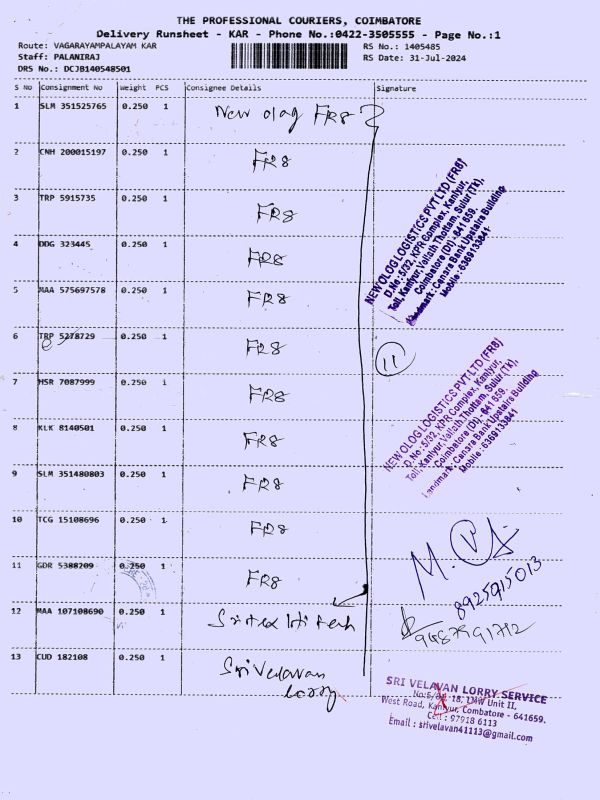 THE PROFESSIONAL COURIERS, COIMBATORE
Delivery Runsheet - KAR - Phone No.:0422-3505555 - Page No.:1
Route: VAGARAYAMPALAYAM KAR RS No.: 1405485
Staff: PALANIRAJ RS Date: 31-Jul-2024
DRS No.: DCJB140548501
S No Consignment No Weight PCS Consignee Details Signature
1 SLM 351525765 0.250 1 New olag FR8
2 CNH 200015197 0.250 1 FR8
3 TRP 5915735 0.250 1 FR8
4 DDG 323445 0.250 1 FR8
5 MAA 575697578 0.250 1 FR8
6 TRP 5278729 0.250 1 FR8
7 HSR 7087999 0.250 1 FR8
8 KLK 8140501 0.250 1 FR8
9 SLM 351480803 0.250 1 FR8
10 TCG 15108696 0.250 1 FR8
11 GDR 5388209 0.250 1 FR8
12 MAA 107108690 0.250 1
13 CUD 182108 0.250 1 Sri Velavan
lorry
NEW OLOG LOGISTICS PVT LTD (FR8)
D.No : 5/32, KPR Complex, Kaniyur,
Toll, Kaniyur, Vellath Thottam, Sulur (Tk),
Coimbatore (Dt) - 641 659.
Landmark : Canara Bank Upstairs Building
Mobile : 6369133841
11
NEW OLOG LOGISTICS PVT LTD (FR8)
D.No : 5/32, KPR Complex, Kaniyur,
Toll, Kaniyur, Vellath Thottam, Sulur (Tk),
Coimbatore (Dt) - 641 659.
Landmark : Canara Bank Upstairs Building
Mobile : 6369133841
8925915013
9487991712
SRI VELAVAN LORRY SERVICE
18, LMW Unit II,
West Road, Kaniyur, Combatore - 641659.
Cell : 97918 6113
Email : srivelavan41113@gmail.com